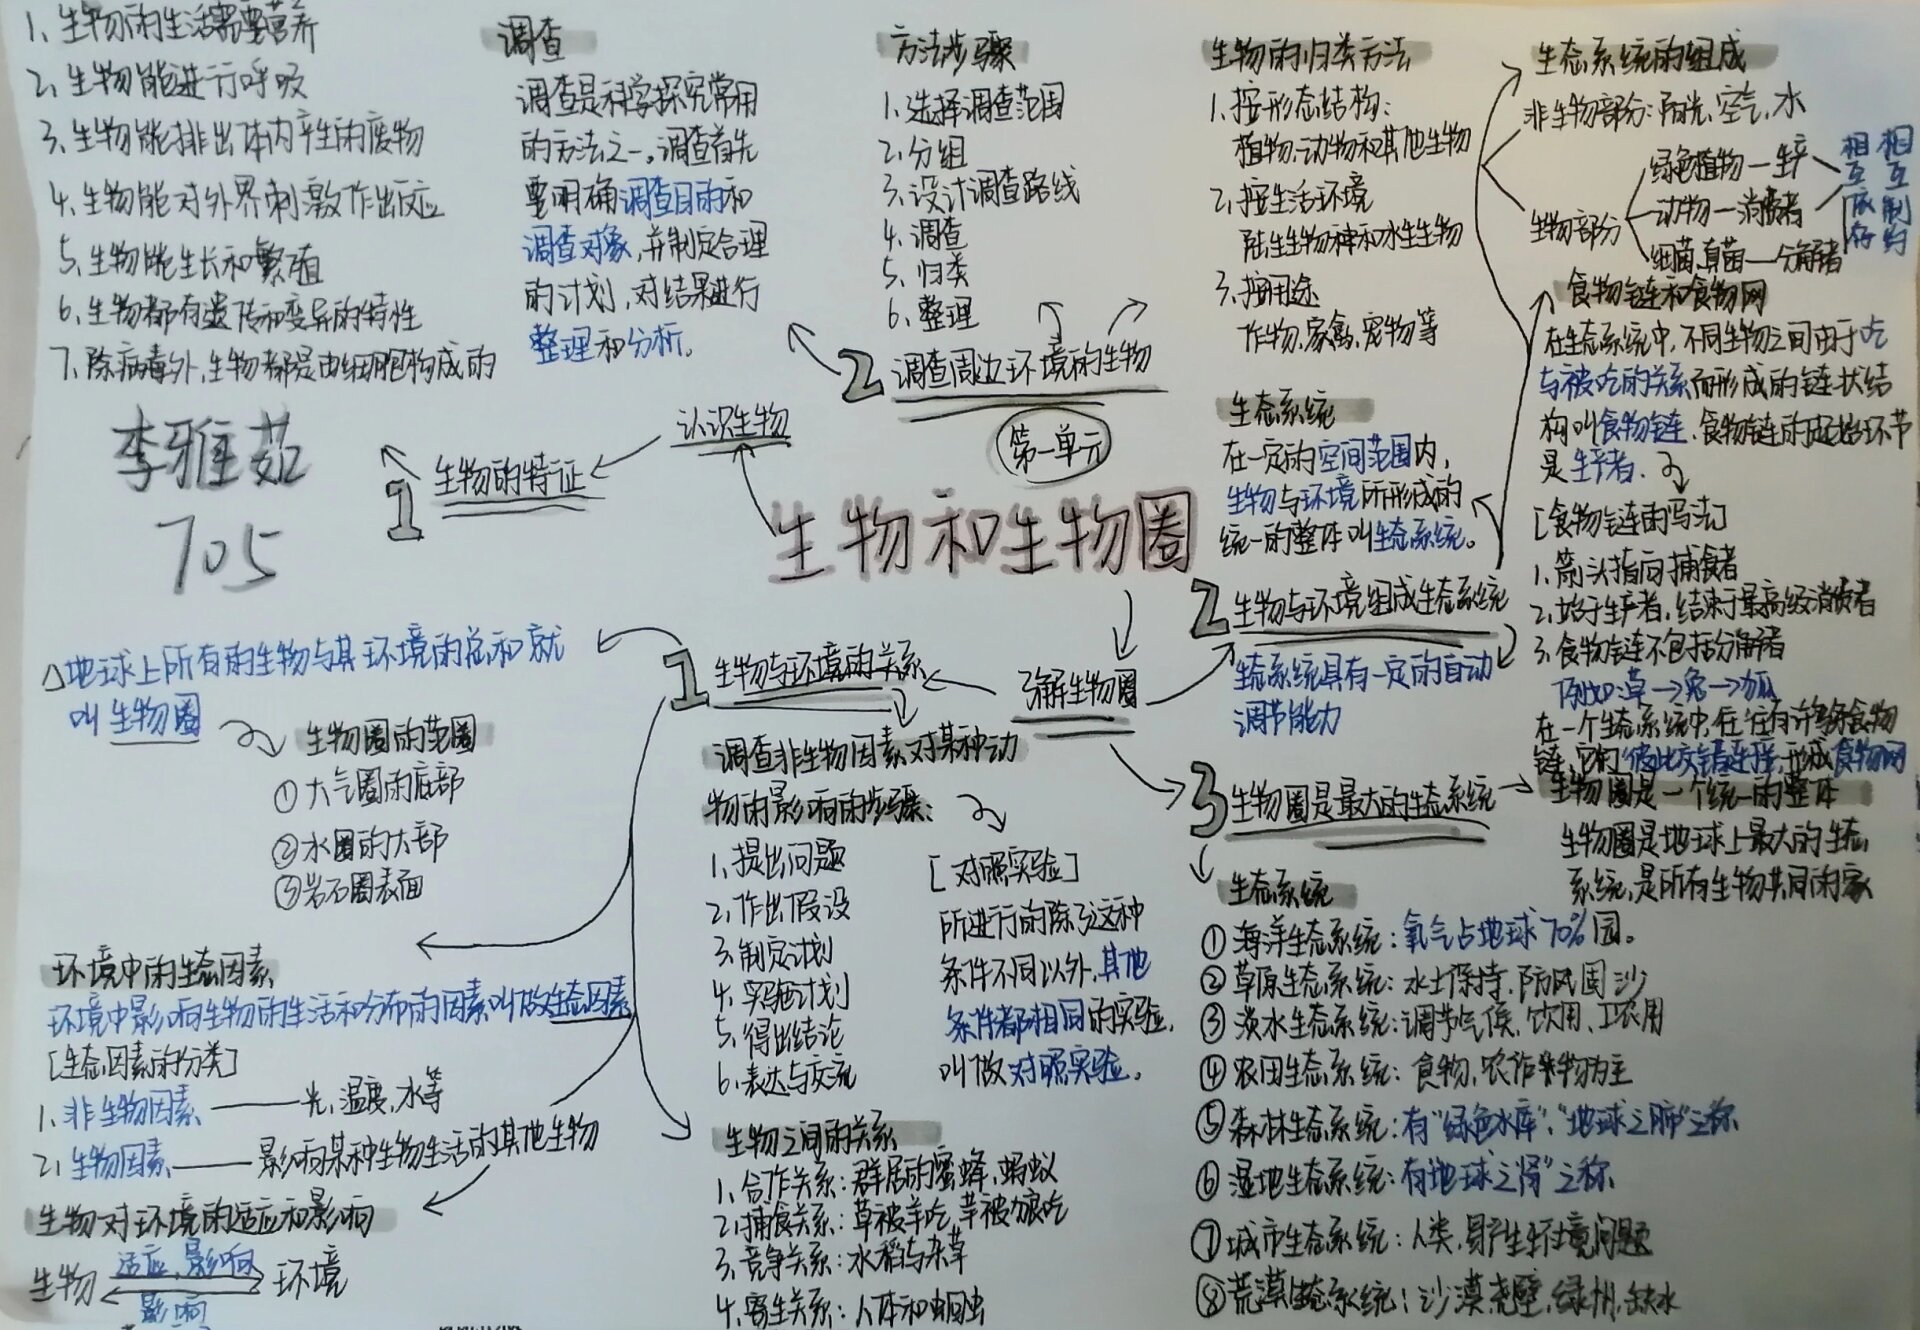 1、生物的生活需要营养
2、生物能进行呼吸
3、生物能排出体内产生的废物
4、生物能对外界刺激作出反应
5、生物能生长和繁殖
6、生物都有遗传和变异的特性
7、除病毒外,生物都是由细胞构成的
李雅茹
705
调查
调查是科学探究常用
的方法之一。调查首先
要明确调查目的和
调查对象,并制定合理
的计划,对结果进行
整理和分析。
方法步骤
1.选择调查范围
2.分组
3.设计调查路线
4.调查
5.归类
6.整理
2 调查周边环境的生物
认识生物
1 生物的特征
第一单元
生物和生物圈
生物的归类方法
1.按形态结构:
植物、动物和其他生物
2.按生活环境
陆生生物和水生生物
3.按用途
作物、家禽、宠物等
生态系统
在一定的空间范围内,
生物与环境所形成的
统一的整体叫生态系统。
2 生物与环境组成生态系统
生态系统具有一定的自动
调节能力
生态系统的组成
非生物部分:阳光、空气、水
生物部分
绿色植物—生产
动物—消费者
细菌、真菌—分解者
相互依存
相互制约
食物链和食物网
在生态系统中,不同生物之间由于吃
与被吃的关系而形成的链状结
构叫食物链、食物链的起始环节
是生产者.
[食物链的写法]
1.箭头指向捕食者
2.始于生产者,结束于最高级消费者
3.食物链不包括分解者
例如:草→兔→狐
在一个生态系统中,往往有许多食物
链,它们彼此交错连接,形成食物网
了解生物圈
1 生物与环境的关系
△地球上所有的生物与其环境的总和就
叫生物圈
生物圈的范围
①大气圈的底部
②水圈的大部
③岩石圈表面
环境中的生态因素
环境中影响生物的生活和分布的因素叫做生态因素
[生态因素的分类]
1.非生物因素——光、温度、水等
2.生物因素——影响某种生物生活的其他生物
生物对环境的适应和影响
生物 适应、影响 环境
影响
调查非生物因素对某种动
物的影响的步骤:
1.提出问题
2.作出假设
3.制定计划
4.实施计划
5.得出结论
6.表达与交流
[对照实验]
所进行的除了这种
条件不同以外,其他
条件都相同的实验,
叫做对照实验。
生物之间的关系
1.合作关系:群居的蜜蜂、蚂蚁
2.捕食关系:草被羊吃,羊被狼吃
3.竞争关系:水稻与杂草
4.寄生关系:人体和蛔虫
3 生物圈是最大的生态系统
生物圈是一个统一的整体
生物圈是地球上最大的生态
系统,是所有生物共同的家
生态系统
①海洋生态系统:氧气占地球70%园。
②草原生态系统:水土保持、防风固沙
③淡水生态系统:调节气候、饮用、工农用
④农田生态系统:食物,农作物为主
⑤森林生态系统:有“绿色水库”、“地球之肺”之称
⑥湿地生态系统:有地球之肾”之称
⑦城市生态系统:人类,易产生环境问题
⑧荒漠生态系统:沙漠戈壁,绿州,缺水